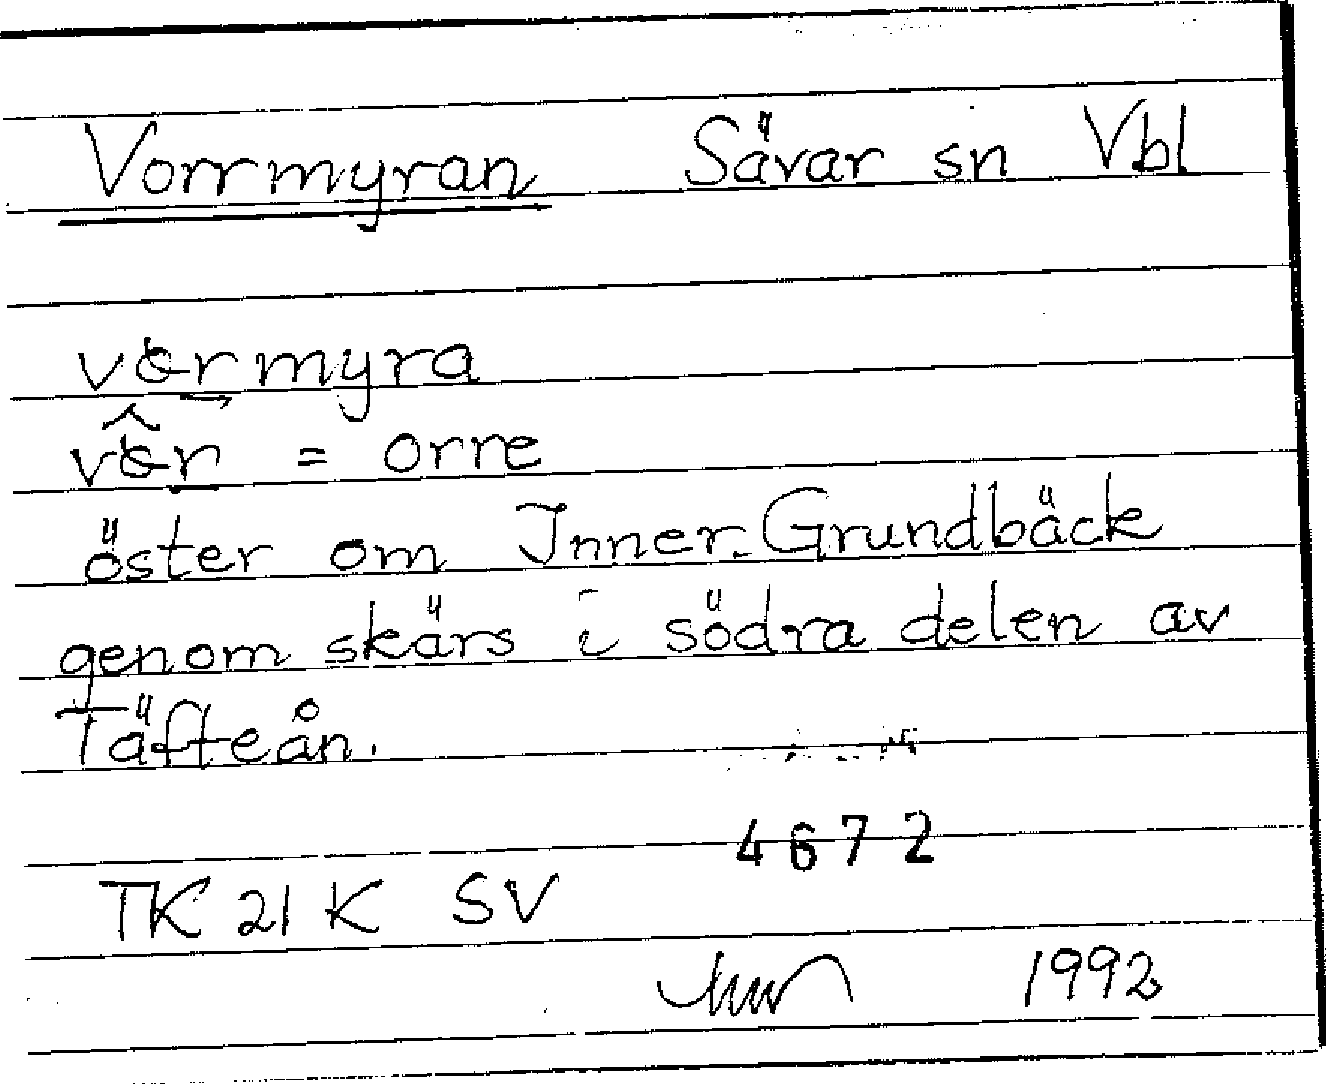 Vorrmyran Sävar sn Vbl
vɵrmyra
= orre
öster om Inner-Grundbäck
genom skärs i södra delen av
Täfteån.
4672
TK 21 K SV
1992